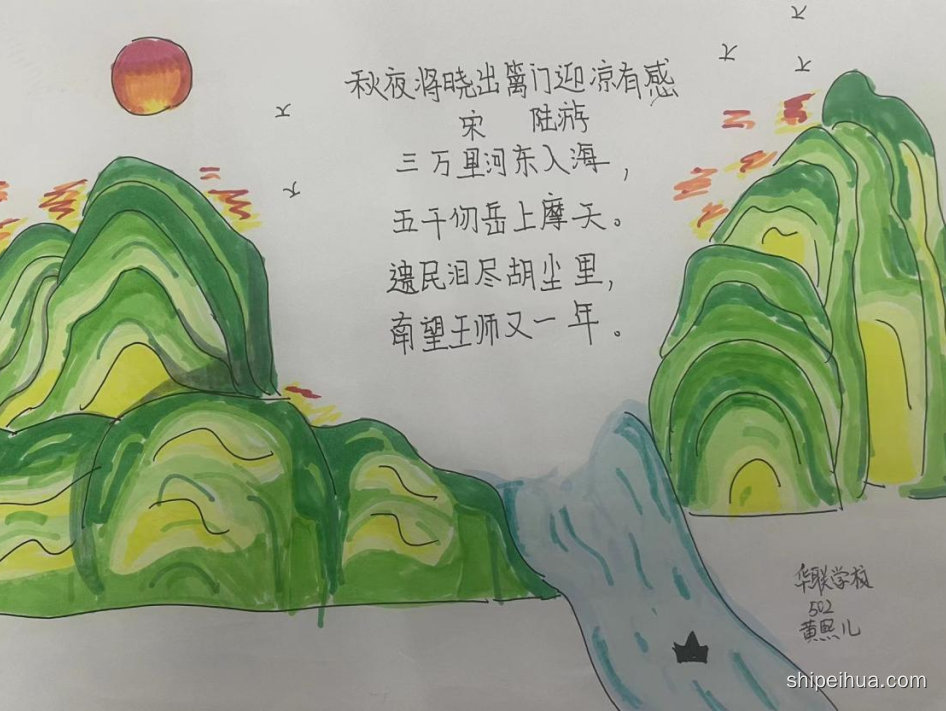 秋夜将晓出篱门迎凉有感
宋 陆游
三万里河东入海，
五千仞岳上摩天。
遗民泪尽胡尘里，
南望王师又一年。
华联学校
502
黄熙儿
shipeihua.com